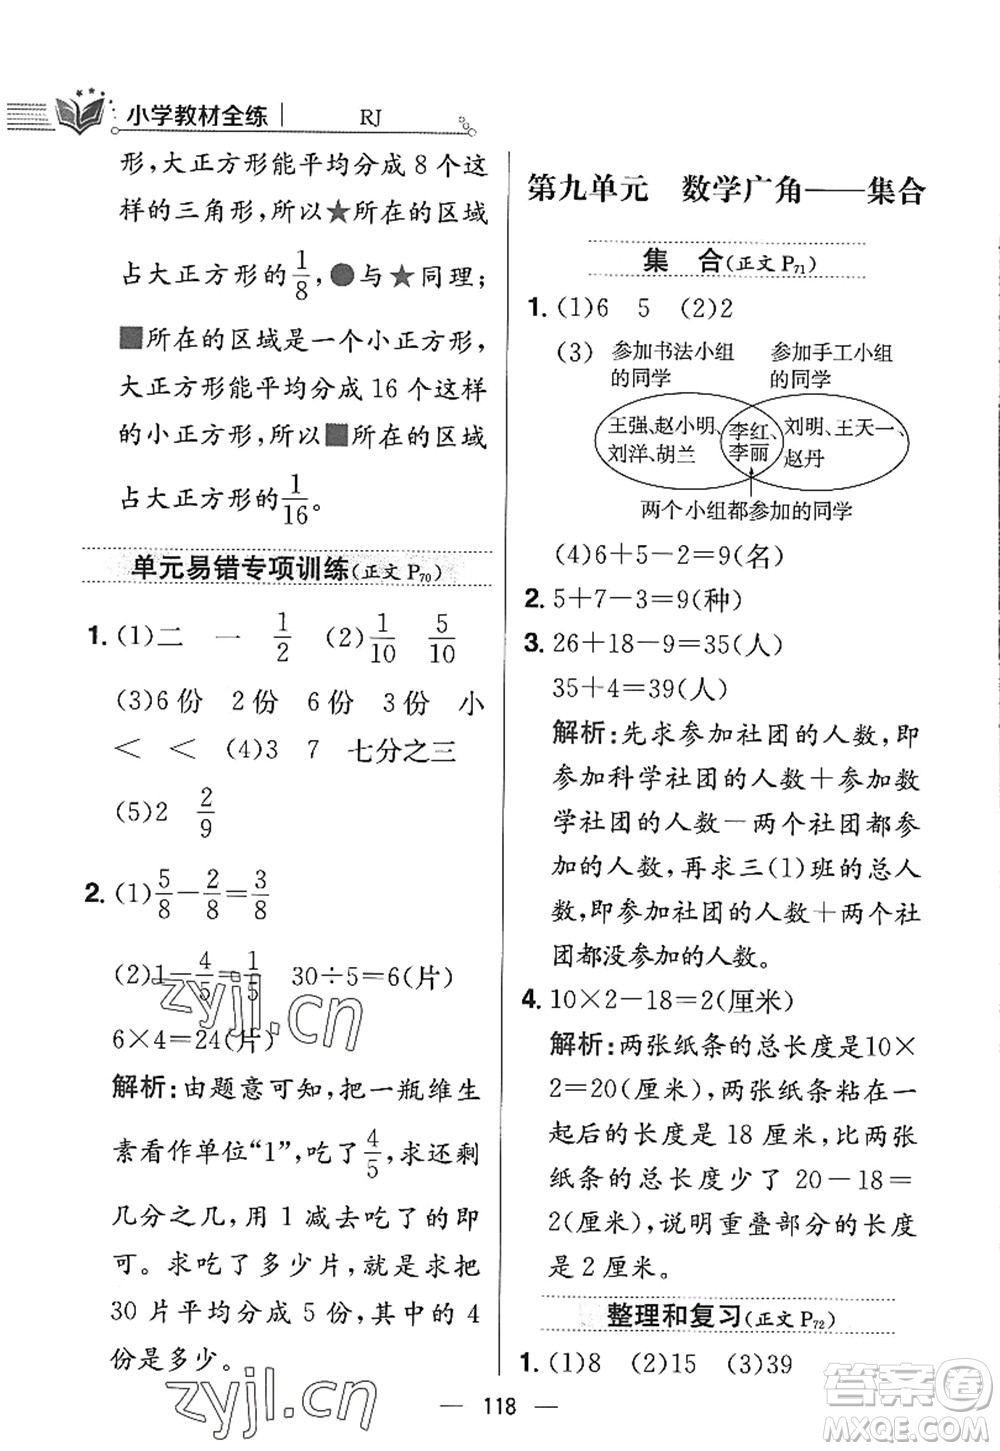 小学教材全练 RJ
形,大正方形能平均分成 8 个这
样的三角形,所以★所在的区域
占大正方形的1/8,●与★同理;
■所在的区域是一个小正方形,
大正方形能平均分成 16 个这样
的小正方形,所以■所在的区域
占大正方形的1/16。
单元易错专项训练(正文 P70)
1. (1)二 一 1/2 (2)1/10 5/10
(3)6份 2份 6份 3份 小
< < (4)3 7 七分之三
(5)2 2/9
2. (1)5/8-2/8=3/8
(2)1-4/5=1/5 30÷5=6(片)
6×4=24(片)
解析:由题意可知,把一瓶维生
素看作单位“1”,吃了4/5,求还剩
几分之几,用 1 减去吃了的即
可。求吃了多少片,就是求把
30 片平均分成 5 份,其中的 4
份是多少。
第九单元 数学广角——集合
集 合(正文 P71)
1. (1)6 5 (2)2
(3) 参加书法小组的同学 参加手工小组的同学
王强、赵小明、刘洋、胡兰
李红、李丽
刘明、王天一、赵丹
两个小组都参加的同学
(4)6+5-2=9(名)
2. 5+7-3=9(种)
3. 26+18-9=35(人)
35+4=39(人)
解析:先求参加社团的人数,即
参加科学社团的人数+参加数
学社团的人数-两个社团都参
加的人数,再求三(1)班的总人
数,即参加社团的人数+两个社
团都没参加的人数。
4. 10×2-18=2(厘米)
解析:两张纸条的总长度是10×
2=20(厘米),两张纸条粘在一
起后的长度是 18 厘米,比两张
纸条的总长度少了 20-18=
2(厘米),说明重叠部分的长度
是 2 厘米。
整理和复习(正文 P72)
1. (1)8 (2)15 (3)39
— 118 —
zyjl.cn
zyjl.cn
答案圈
MXQE.COM